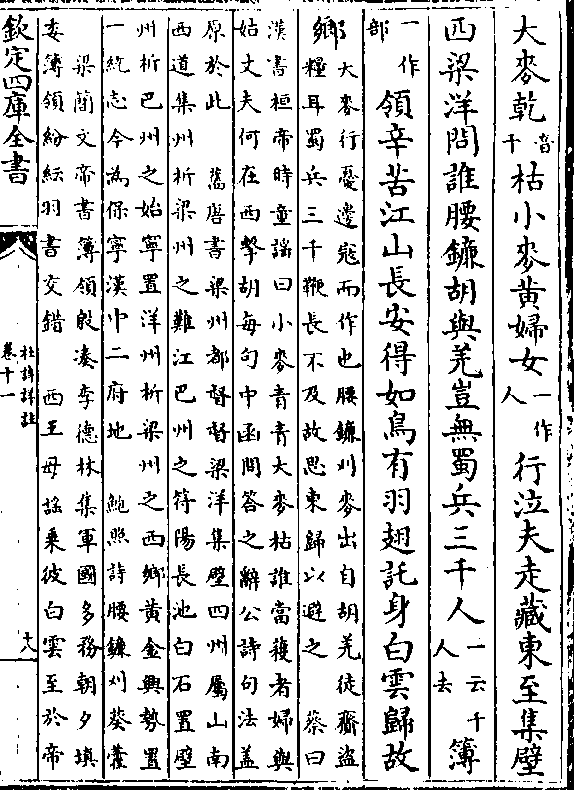 大麥乾音干枯小麥黄婦女一作人行泣夫走藏東至集壁
西梁洋問誰腰鎌胡與羌豈無蜀兵三千人一云千人去簿
一作部領辛苦江山長安得如鳥有羽翅託身白雲歸故
鄉大麥行憂邊冦而作也腰鎌刈麥出自胡羌徒齎盗
糧耳蜀兵三千鞭長不及故思東歸以避之　蔡曰
漢書桓帝時童謡曰小麥青青大麥枯誰當穫者婦與
姑丈夫何在西擊胡每句中函問答之辭公詩句法葢
原於此　舊唐書梁州都督督梁洋集壁四州屬山南
西道集州析梁州之難江巴州之符陽長池白石置壁
州析巴州之始寧置洋州析梁州之西鄉黄金興勢置
一統志今為保寧漢中二府地　鮑照詩腰鎌刈葵藿
梁簡文帝書簿領殷湊李德林集軍國多務朝夕填
委簿領紛紜羽書交錯　西王母謡乗彼白雲至於帝
欽定四庫全書
杜詩詳註
卷十一
十八